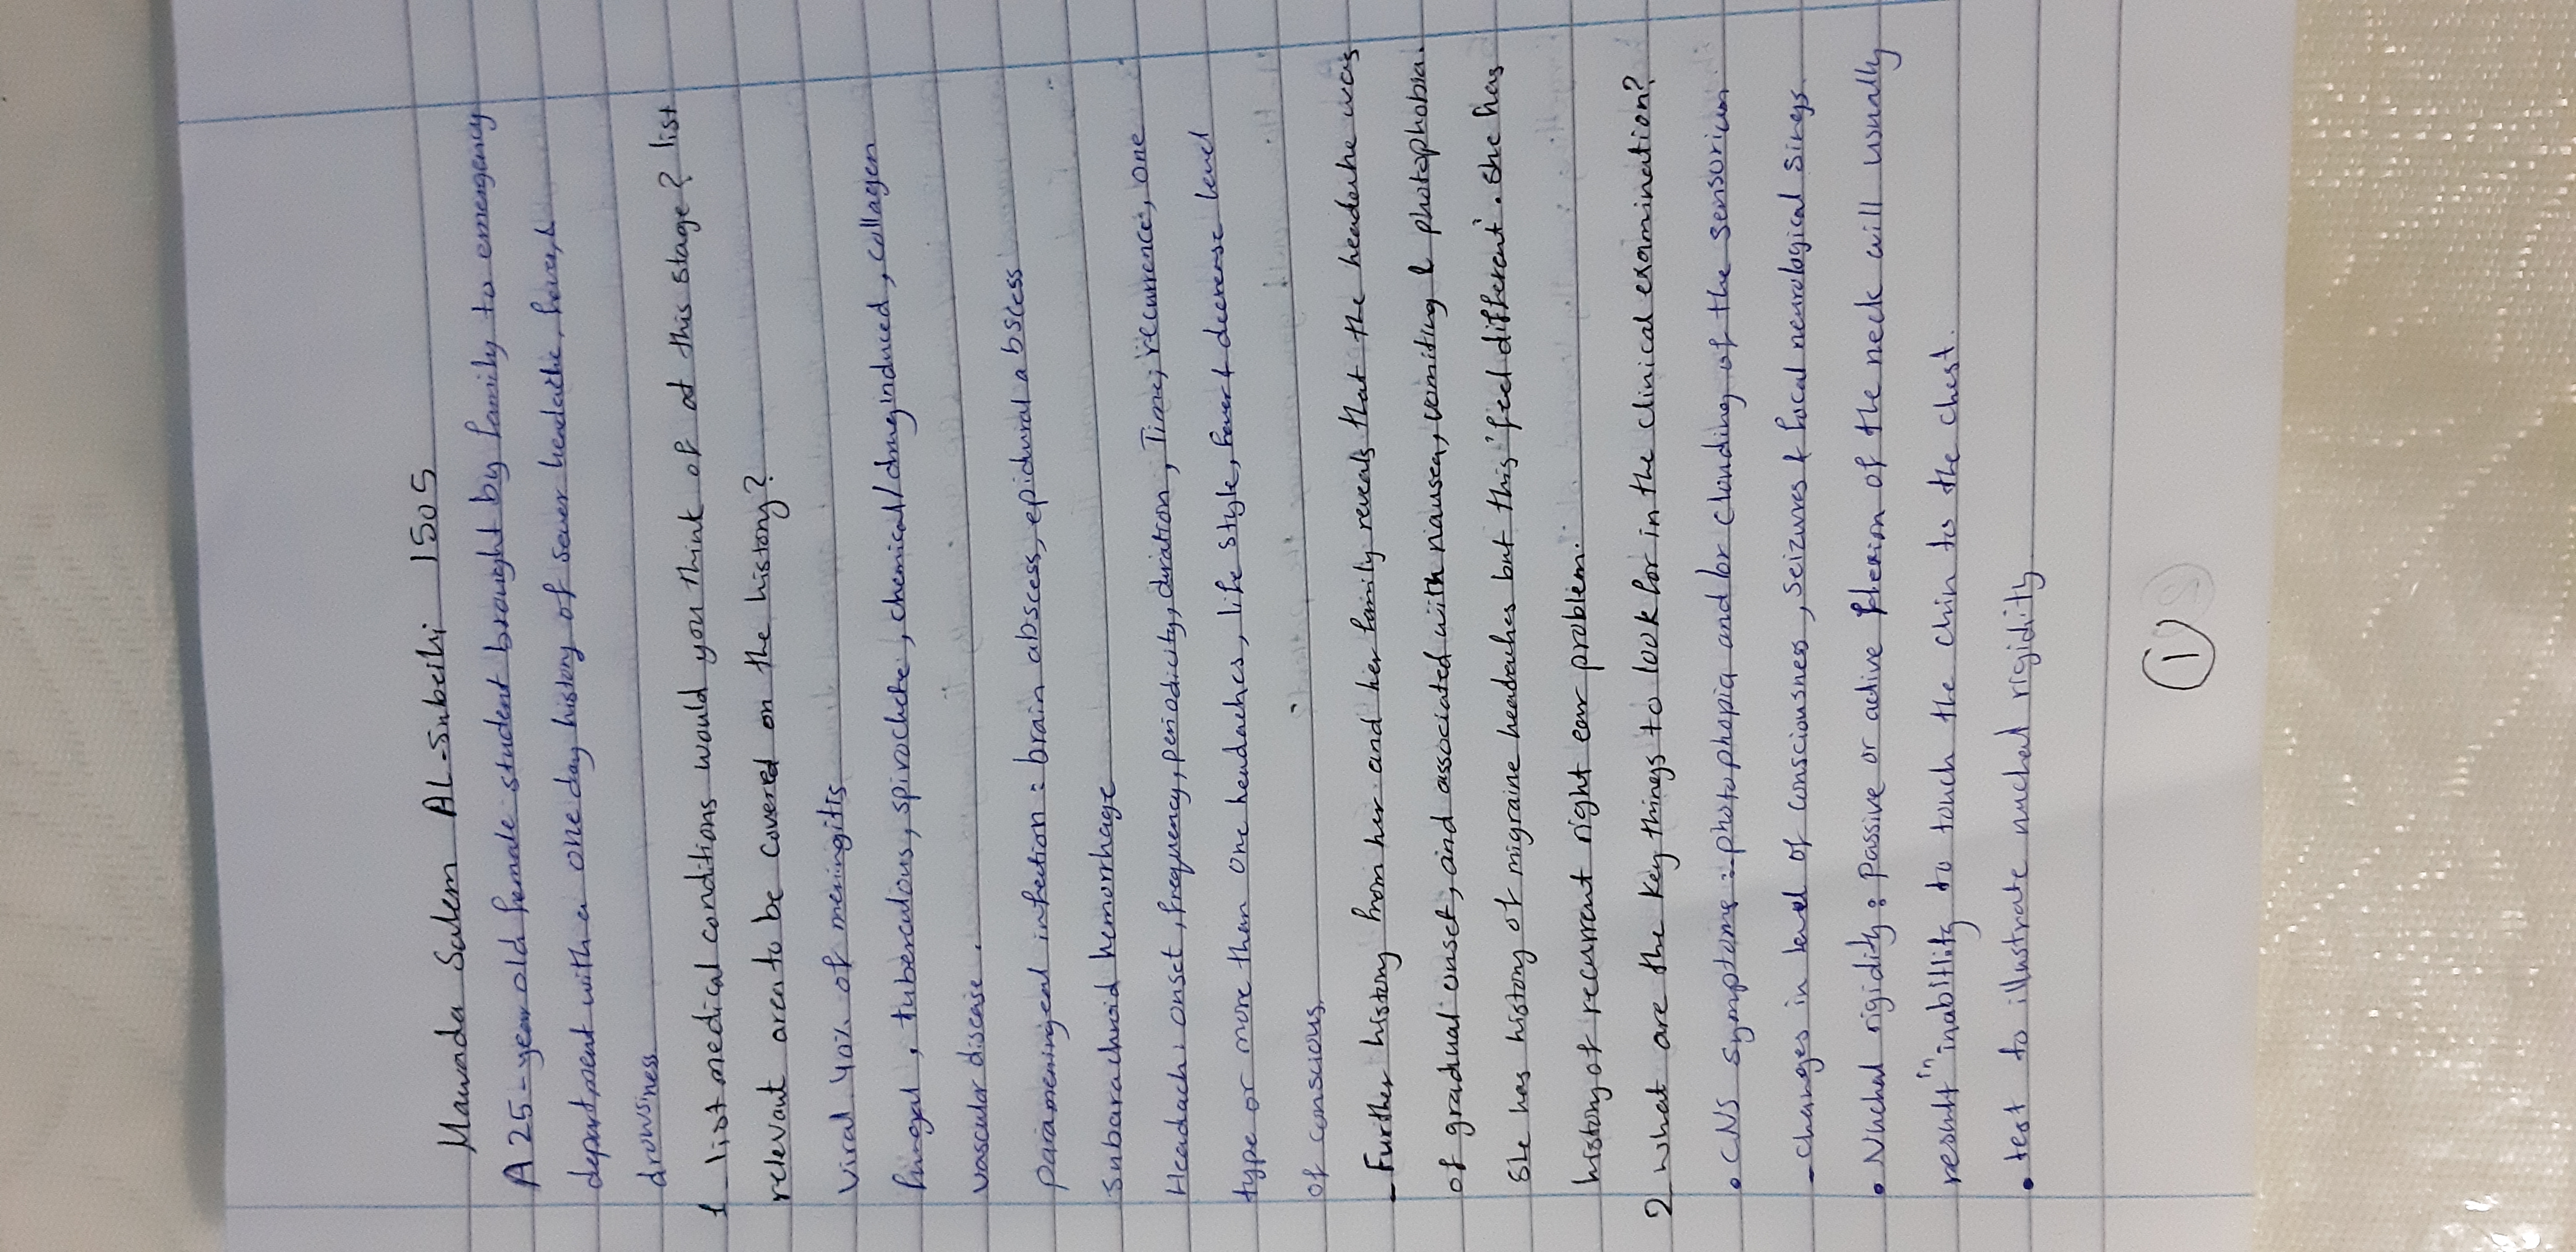 Mawada Salem AL-Subeihi 1505
A 25-year old female student brought by family to emergency
department with a one day history of sever headache, fever, &
drowsiness
1_ list medical conditions would you think of at this stage? list
relevant area to be covered on the history?
Viral 40% of meningitis
fungal, tuberculous, spirochete, chemical/drug induced, collagen
vascular disease.
Parameningeal infection: brain abscess, epidural abscess
Subarachnoid hemorrhage
Headach: onset, frequency, periodicity, duration, Time, recurrence, one
type or more then one headaches, life style, fever & decrease level
of conscious
- Further history from her and her family reveals that the headache was
of gradual onset, and associated with nausea, vomiting & photophobia.
She has history of migraine headaches but this 'feel different'. She has
history of recurrent right ear problem.
2 what are the key things to look for in the clinical examination?
• CNS symptoms: photophopia and/or clouding of the sensorium
- changes in level of consciousness, Seizures & focal neurological Sings.
• Nuchal rigidity: passive or active flexion of the neck will usually
result in inability to touch the chin to the chest.
• test to illustrate nuchal rigidity
1